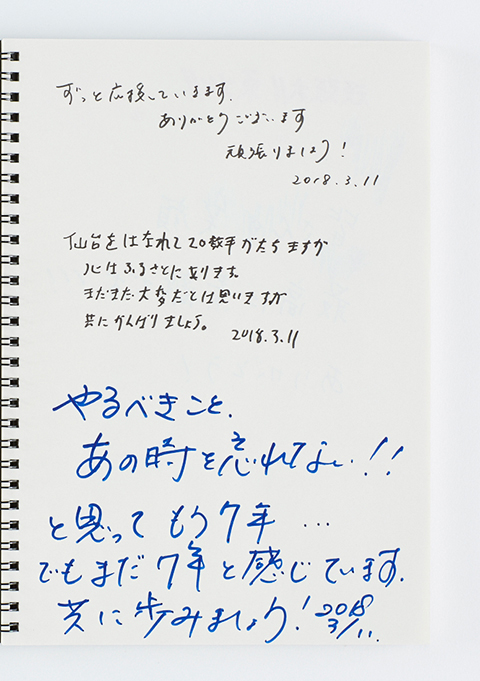 ずっと応援しています.
ありがとうございます
頑張りましょう!
2018.3.11
仙台をはなれて20数年がたちますが
心はふるさとにあります。
まだまだ大変だとは思いますが
共にがんばりましょう。
2018.3.11
やるべきこと、
あの時を忘れてない!!
と思ってもう7年...
でもまだ7年と感じています.
共に歩みましょう! 2018
3/11.